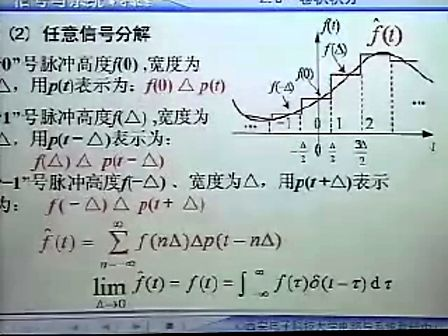 (2) 任意信号分解
"0"号脉冲高度f(0),宽度为
△,用p(t)表示为: f(0) △ p(t)
"1"号脉冲高度f(△),宽度为
△,用p(t－△)表示为:
f(△) △ p(t－△)
"-1"号脉冲高度f(-△)、宽度为△,用p(t+△)表示
为: f(－△) △ p(t＋△)
f̂(t) = ∑_{n=-∞}^{∞} f(nΔ)Δp(t－nΔ)
lim_{Δ→0} f̂(t) = f(t) = ∫_{-∞}^{∞} f(τ)δ(t－τ)dτ
f(t)
f̂(t)
f(△)
f(0)
f(-△)
... -1 0 1 2 ...
-Δ/2 0 Δ/2 3Δ/2 t